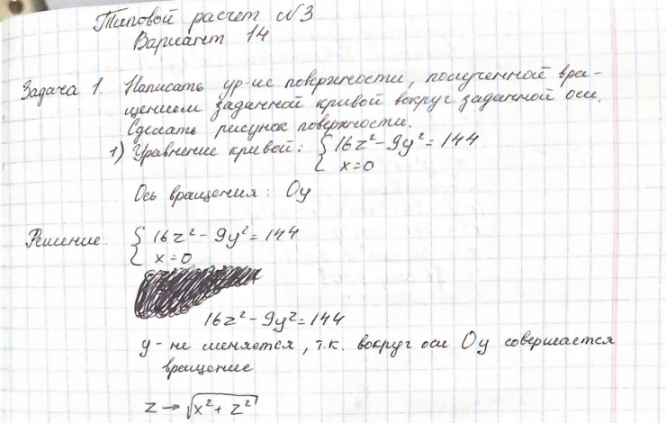 Типовой расчет №3
Вариант 14
Задача 1. Написать ур-ие поверхности, полученной вра-
щением заданной кривой вокруг заданной оси.
Сделать рисунок поверхности.
1) Уравнение кривой: { 16z² - 9y² = 144
x = 0
Ось вращения: Oy
Решение. { 16z² - 9y² = 144
x = 0
16z² - 9y² = 144
y - не меняется, т.к. вокруг оси Oy совершается
вращение
z → √(x² + z²)